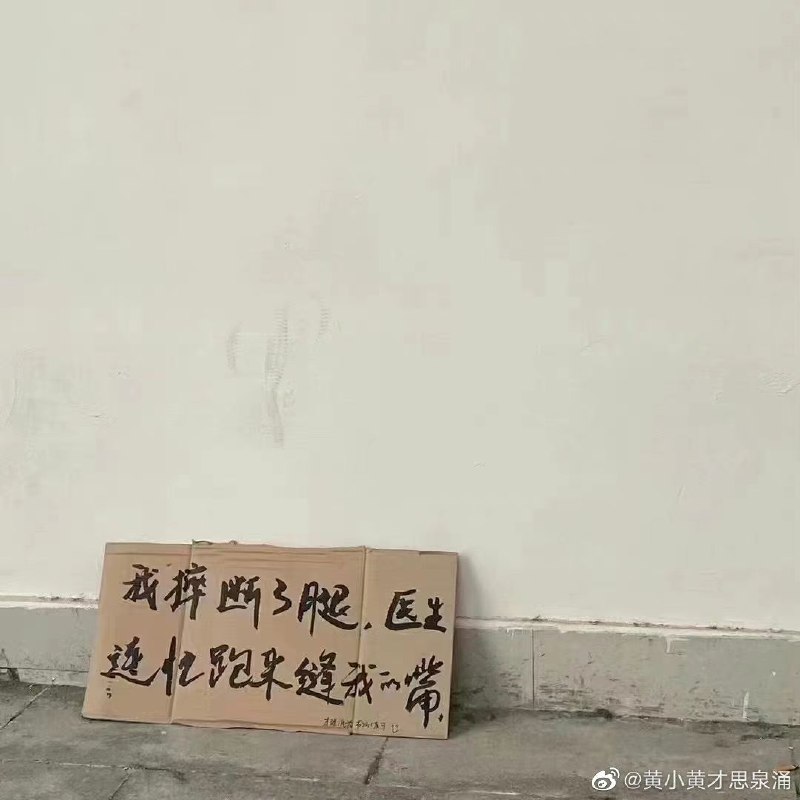 我摔断了腿，医生
连忙跑来缝我的嘴，
@黄小黄才思泉涌